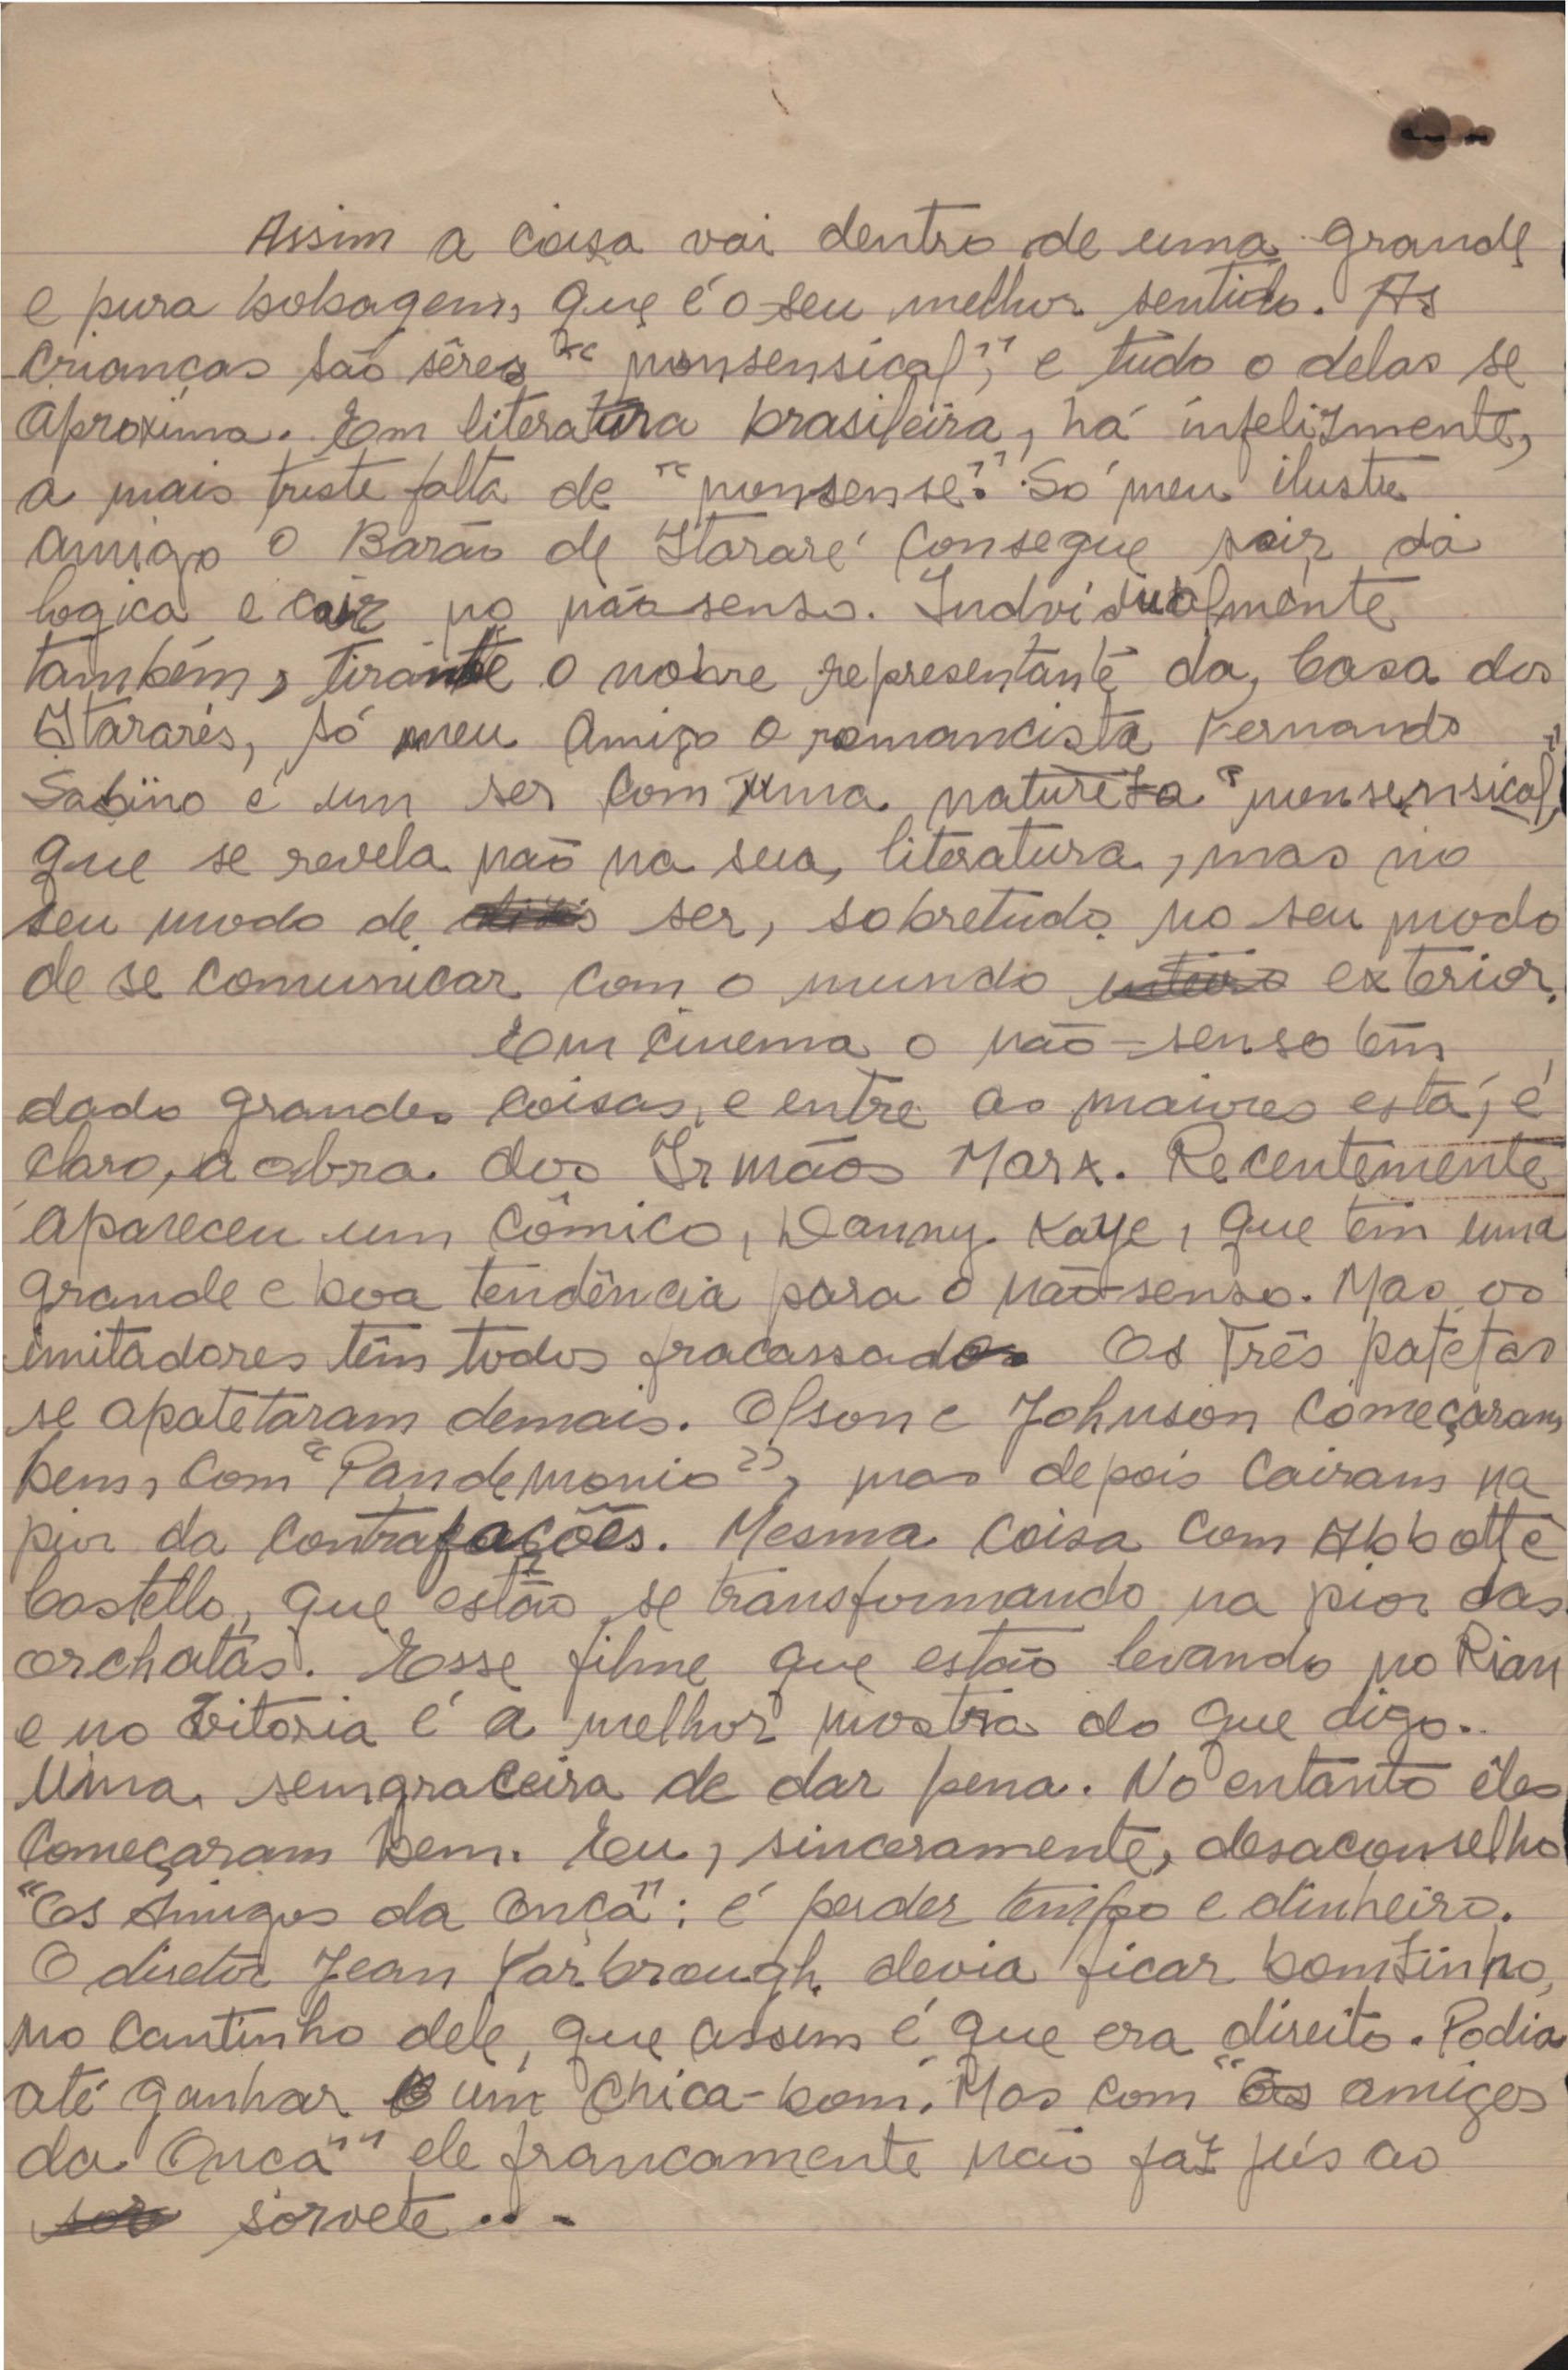 Assim a coisa vai dentro de uma grande
e pura bobagem, que é o seu melhor sentido. As
crianças são sêres "nonsensical", e tudo o delas se
aproxima. Em literatura brasileira, há infelizmente,
a mais triste falta de "nonsense". Só meu ilustre
amigo o Barão de Itararé consegue sair da
logica e cair no não senso. Indvidualmente
também, tirante o nobre representante da Casa dos
Itararés, só meu amigo o romancista Fernando
Sabino é um ser com uma natureza "nonsensical",
que se revela não na sua literatura, mas no
seu modo de ser, sobretudo no seu modo
de se comunicar com o mundo exterior.
Em cinema o não-senso tem
dado grandes coisas, e entre as maiores está, é
claro, a obra dos Irmãos Marx. Recentemente
apareceu um cômico, Danny Kaye, que tem uma
grande e boa tendência para o não-senso. Mas os
imitadores têm todos fracassado. Os Três patetas
se apatetaram demais. Olson e Johnson começaram
bem, com "Pandemonio", mas depois cairam na
pior da contrafações. Mesma coisa com Abbott e
Costello, que estão se transformando na pior das
orchatas. Esse filme que estão levando no Rian
e no Vitoria é a melhor mostra do que digo.
Uma semgraceira de dar pena. No entanto êles
começaram bem. Eu, sinceramente, desaconselho
"Os Amigos da Onça": é perder tempo e dinheiro.
O diretor Jean Yarbrough devia ficar bomzinho,
no cantinho dele, que assim é que era direito. Podia
até ganhar um Chica-bom. Mas com "Os amigos
da Onça" ele francamente não faz jús ao
sorvete...